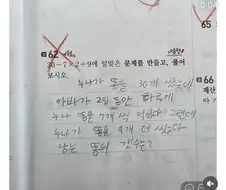 0:04
65
62
30-7×2+9에 알맞은 문제를 만들고, 풀어
보시오.
누나가 똥을 30개 쌌는데
아빠가 2일 동안 하루에
누나 똥을 7개씩 먹었다 그런데
누나가 똥을 9개 더 쌌다
남은 똥의 갯수는?
66
계산